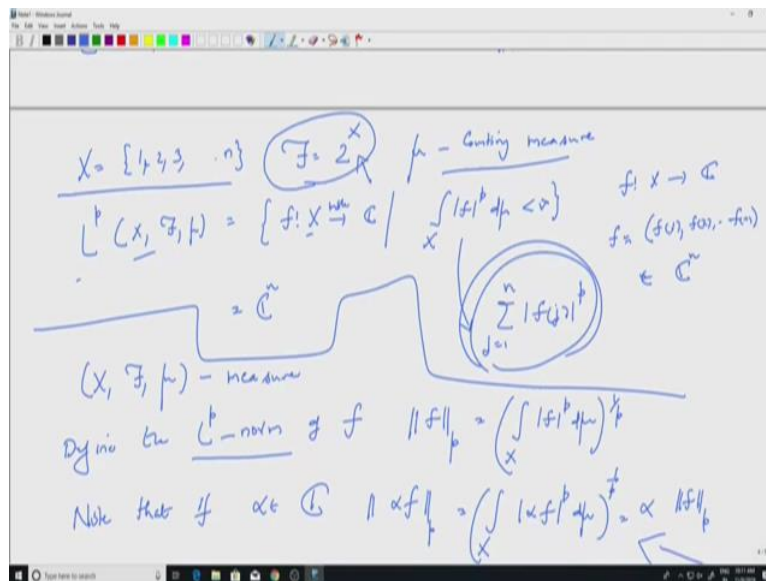 Note1 - Windows Journal
File Edit View Insert Actions Tools Help
X = {1, 2, 3, . n} F = 2^X μ - Counting measure
L^p (X, F, μ) = { f: X → C | ∫_X |f|^p dμ < ∞ } f: X → C
f = (f(1), f(2), .. f(n))
∈ C^n
= C^n Σ_{j=1}^n |f(j)|^p
(X, F, μ) - measure
Define the L^p - norm of f ||f||_p = (∫_X |f|^p dμ)^{1/p}
Note that if α ∈ C ||αf||_p = (∫_X |αf|^p dμ)^{1/p} = α ||f||_p
Type here to search